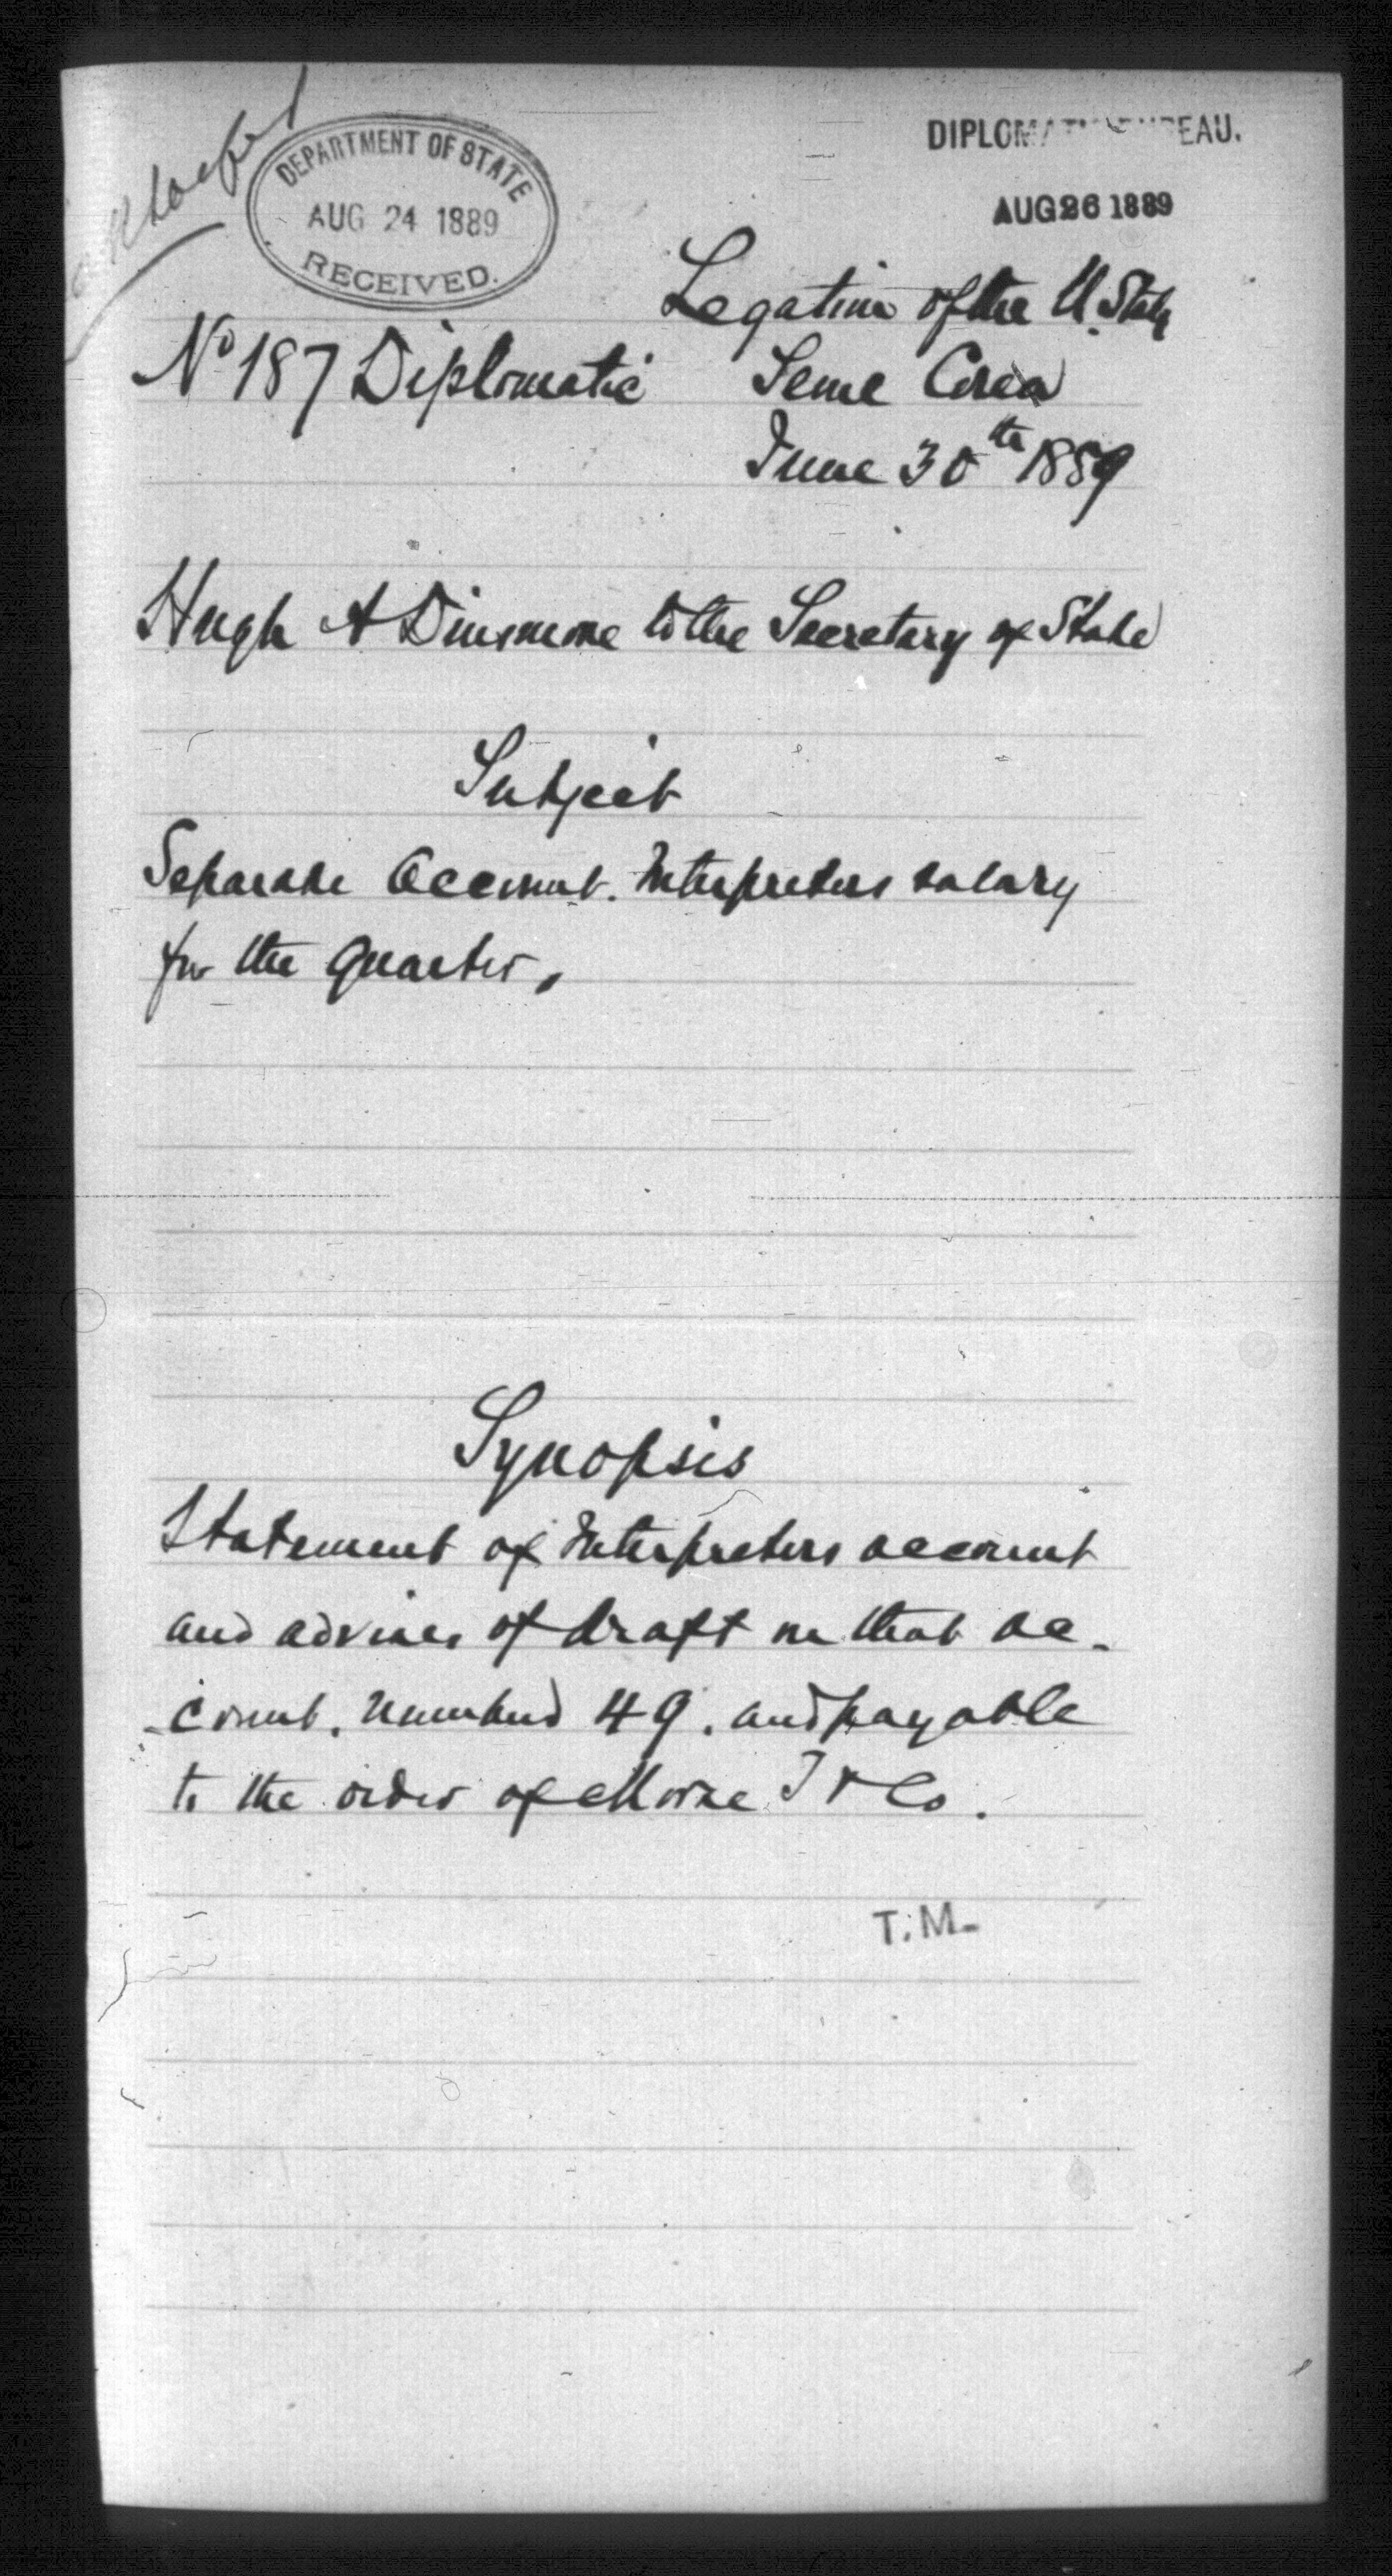 DEPARTMENT OF STATE
AUG 24 1889
RECEIVED.
AUG 26 1889
Legation of the U. States
No 187 Diplomatic Seoul Corea
June 30th 1889
Hugh A Dinsmore to the Secretary of State
Subject
Separate Account. Interpreters salary
for the Quarter,
Synopsis
Statement of Interpreters account
and advises of draft on that ac-
-count. Numbered 49. and payable
to the order of Morse T & Co.
T.M.